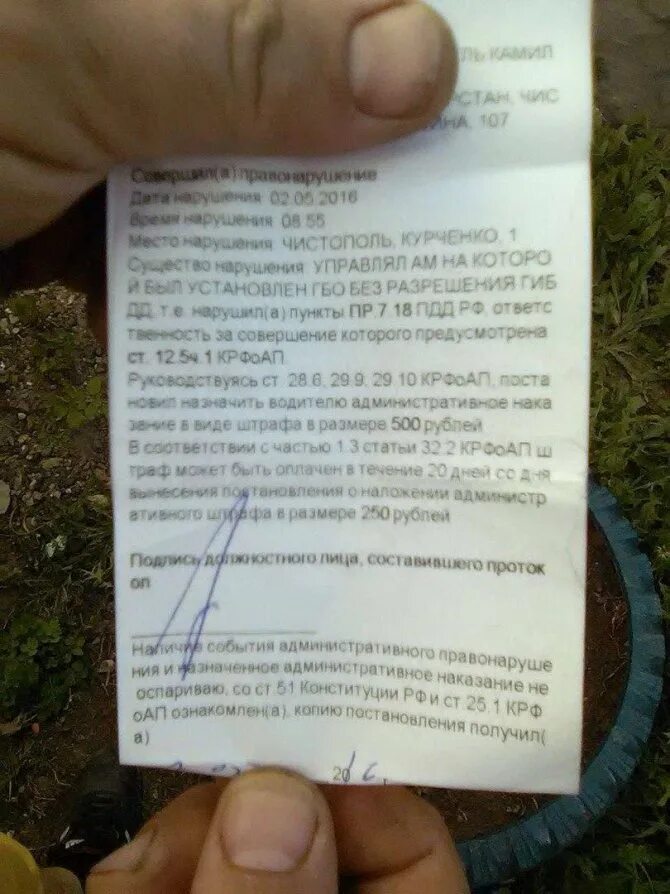 ЛЬ КАМИЛ
РСТАН, ЧИС
ИНА, 107
Совершил(а) правонарушение
Дата нарушения 02.05.2016
Время нарушения 08:55
Место нарушения ЧИСТОПОЛЬ, КУРЧЕНКО, 1
Существо нарушения УПРАВЛЯЛ АМ НА КОТОРО
Й БЫЛ УСТАНОВЛЕН ГБО БЕЗ РАЗРЕШЕНИЯ ГИБ
ДД, т.е. нарушил(а) пункты ПР.7.18 ПДД РФ, ответс
твенность за совершение которого предусмотрена
ст. 12.5ч.1 КРФоАП.
Руководствуясь ст. 28.6, 29.9, 29.10 КРФоАП, поста
новил назначить водителю административное нака
зание в виде штрафа в размере 500 рублей
В соответствии с частью 1.3 статьи 32.2 КРФоАП ш
траф может быть оплачен в течение 20 дней со дня
вынесения постановления о наложении администр
ативного штрафа в размере 250 рублей
Подпись должностного лица, составившего проток
ол
Наличие события административного правонаруше
ния и назначенное административное наказание не
оспариваю, со ст.51 Конституции РФ и ст.25.1 КРФ
оАП ознакомлен(а), копию постановления получил(
а)